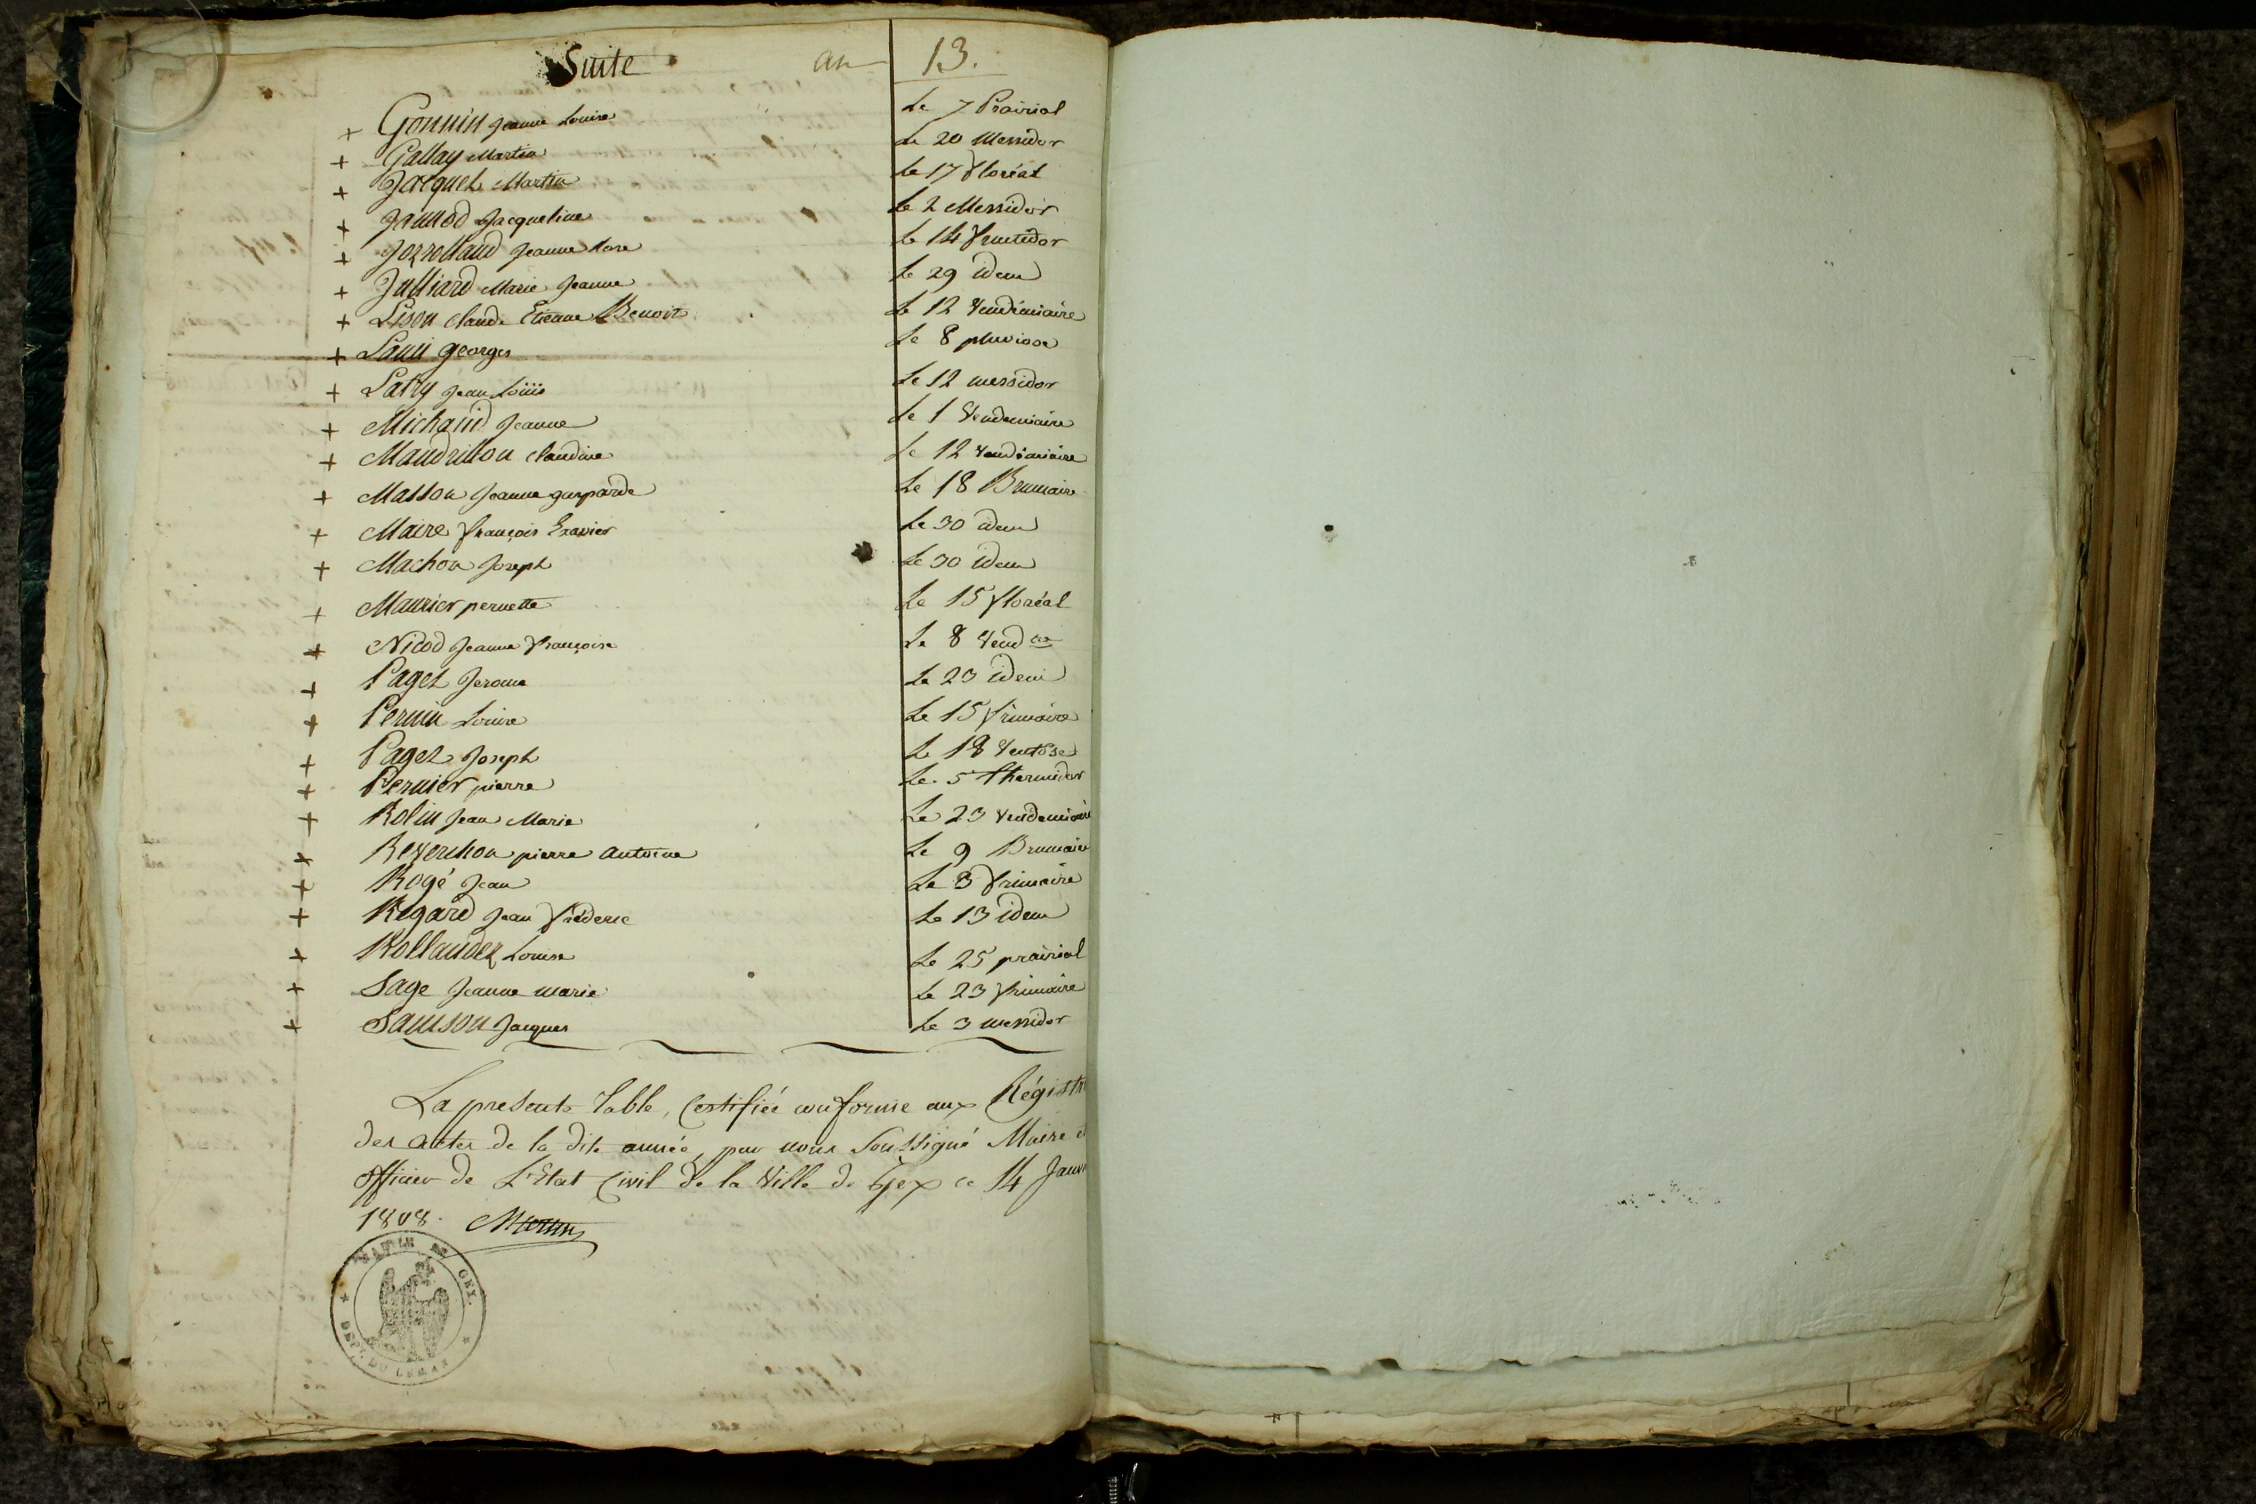 Suite an 13.
+ Gonnin Jeanne Louise Le 7 Prairial
+ Gallay Martin Le 20 Messidor
+ Jacquet Martin Le 17 floréal
+ Jaunod Jacqueline Le 2 Messidor
+ Jeanne Le 14 fructidor
+ Julliard Marie Jeanne Le 29 idem
+ Lison Claude Etienne Benoit Le 12 Vendémiaire
+ Georges Le 8 pluviose
+ Latry Jean Loüis Le 12 messidor
+ Michaud Jeanne Le 1 Vendemiaire
+ Mandrillon Claudine Le 12 Vendémiaire
+ Masson Jeanne gasparde Le 18 Brumaire
+ Maire François Exavier Le 30 idem
+ Machon Joseph Le 30 idem
+ Maurier pernette Le 15 floréal
+ Nicod Jeanne Françoise Le 8 Vend re
+ Paget Jerome Le 23 idem
+ Pernin Louise Le 15 frimaire
+ Paget Joseph Le 18 Ventôse
+ Pernier pierre Le 5 thermidor
+ Rolin Jean Marie Le 23 Vendemiaire
+ Reverchon pierre antoine Le 9 Brumaire
+ Rogé Jean Le 3 frimaire
+ Regard Jean fréderic Le 13 idem
+ Rollandez Louise Le 25 prairial
+ Sage Jeanne marie Le 23 frimaire
+ Samson Jacques Le 3 messidor
La presente Table, Certifiée conforme aux Régistr
des actes de la dite année, par nous Soussigné Maire et
officier de L'Etat Civil de la Ville de Gex ce 14 Janv
1808.
MAIRIE DE GEX.
DEPT. DU LEMAN